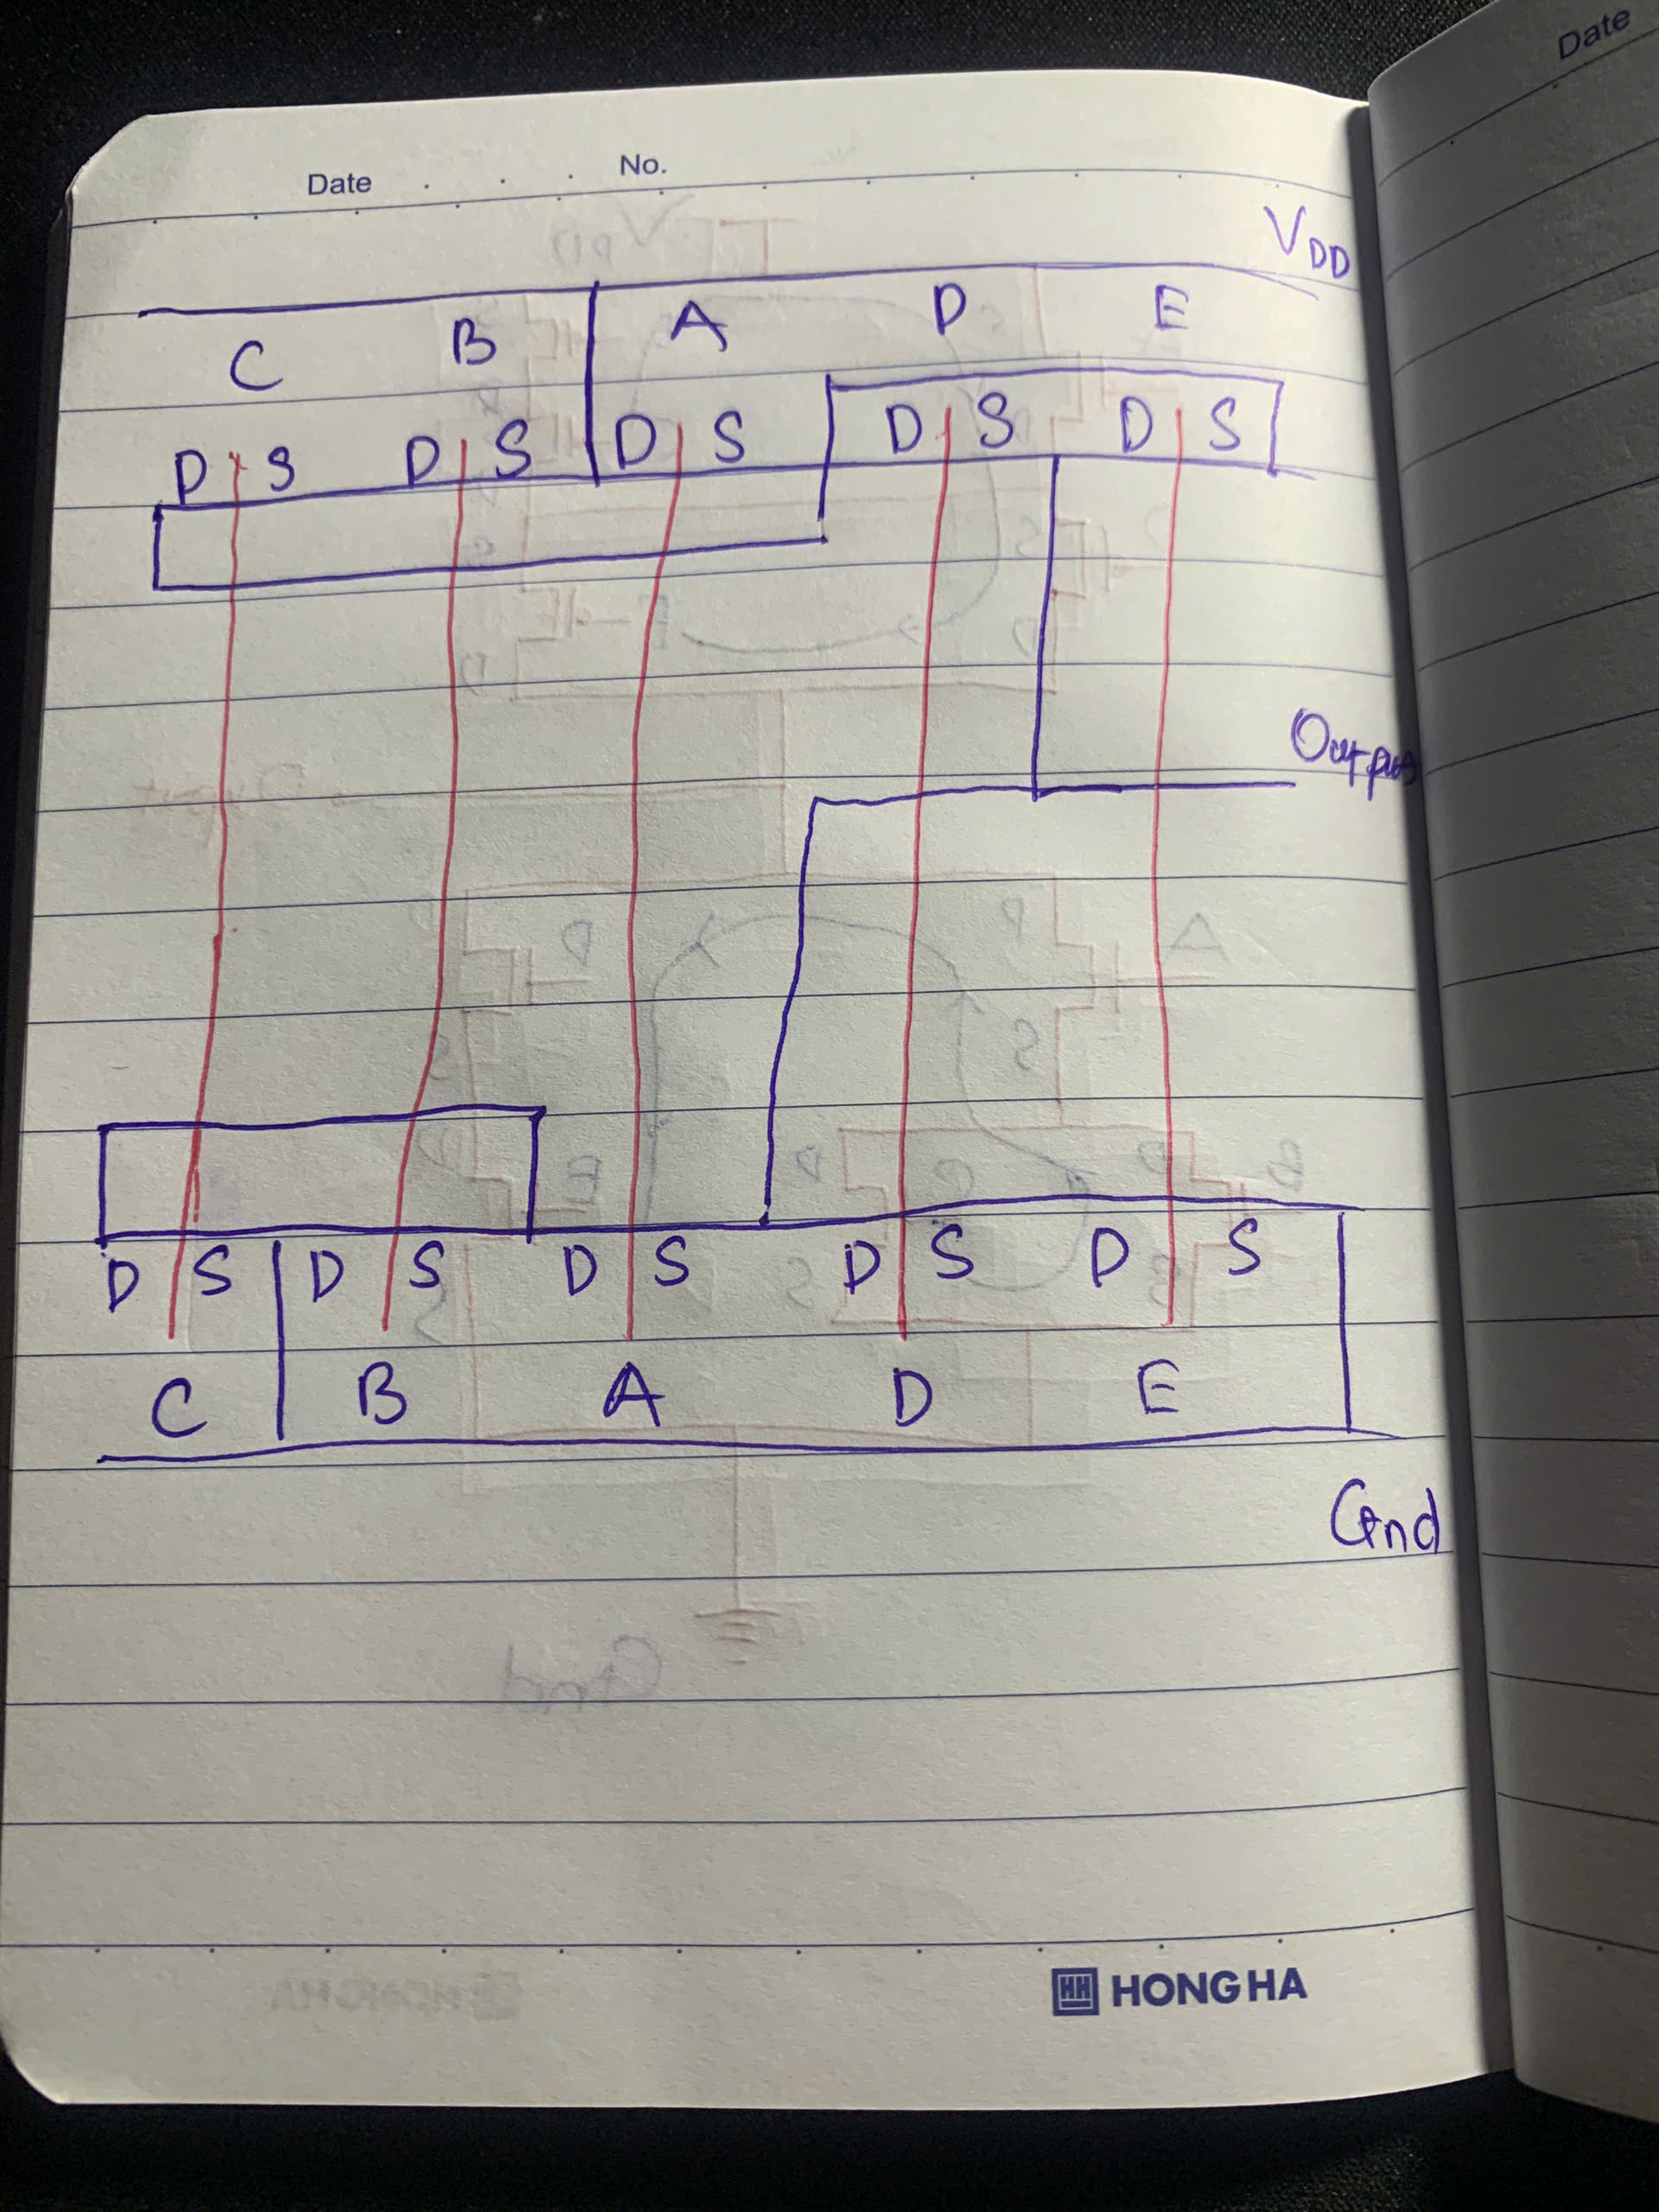 Date
Date No.
VDD
C B A D E
D S D S D S D S D S
Output
D S D S D S D S D S
C B A D E
Gnd
HH HONG HA